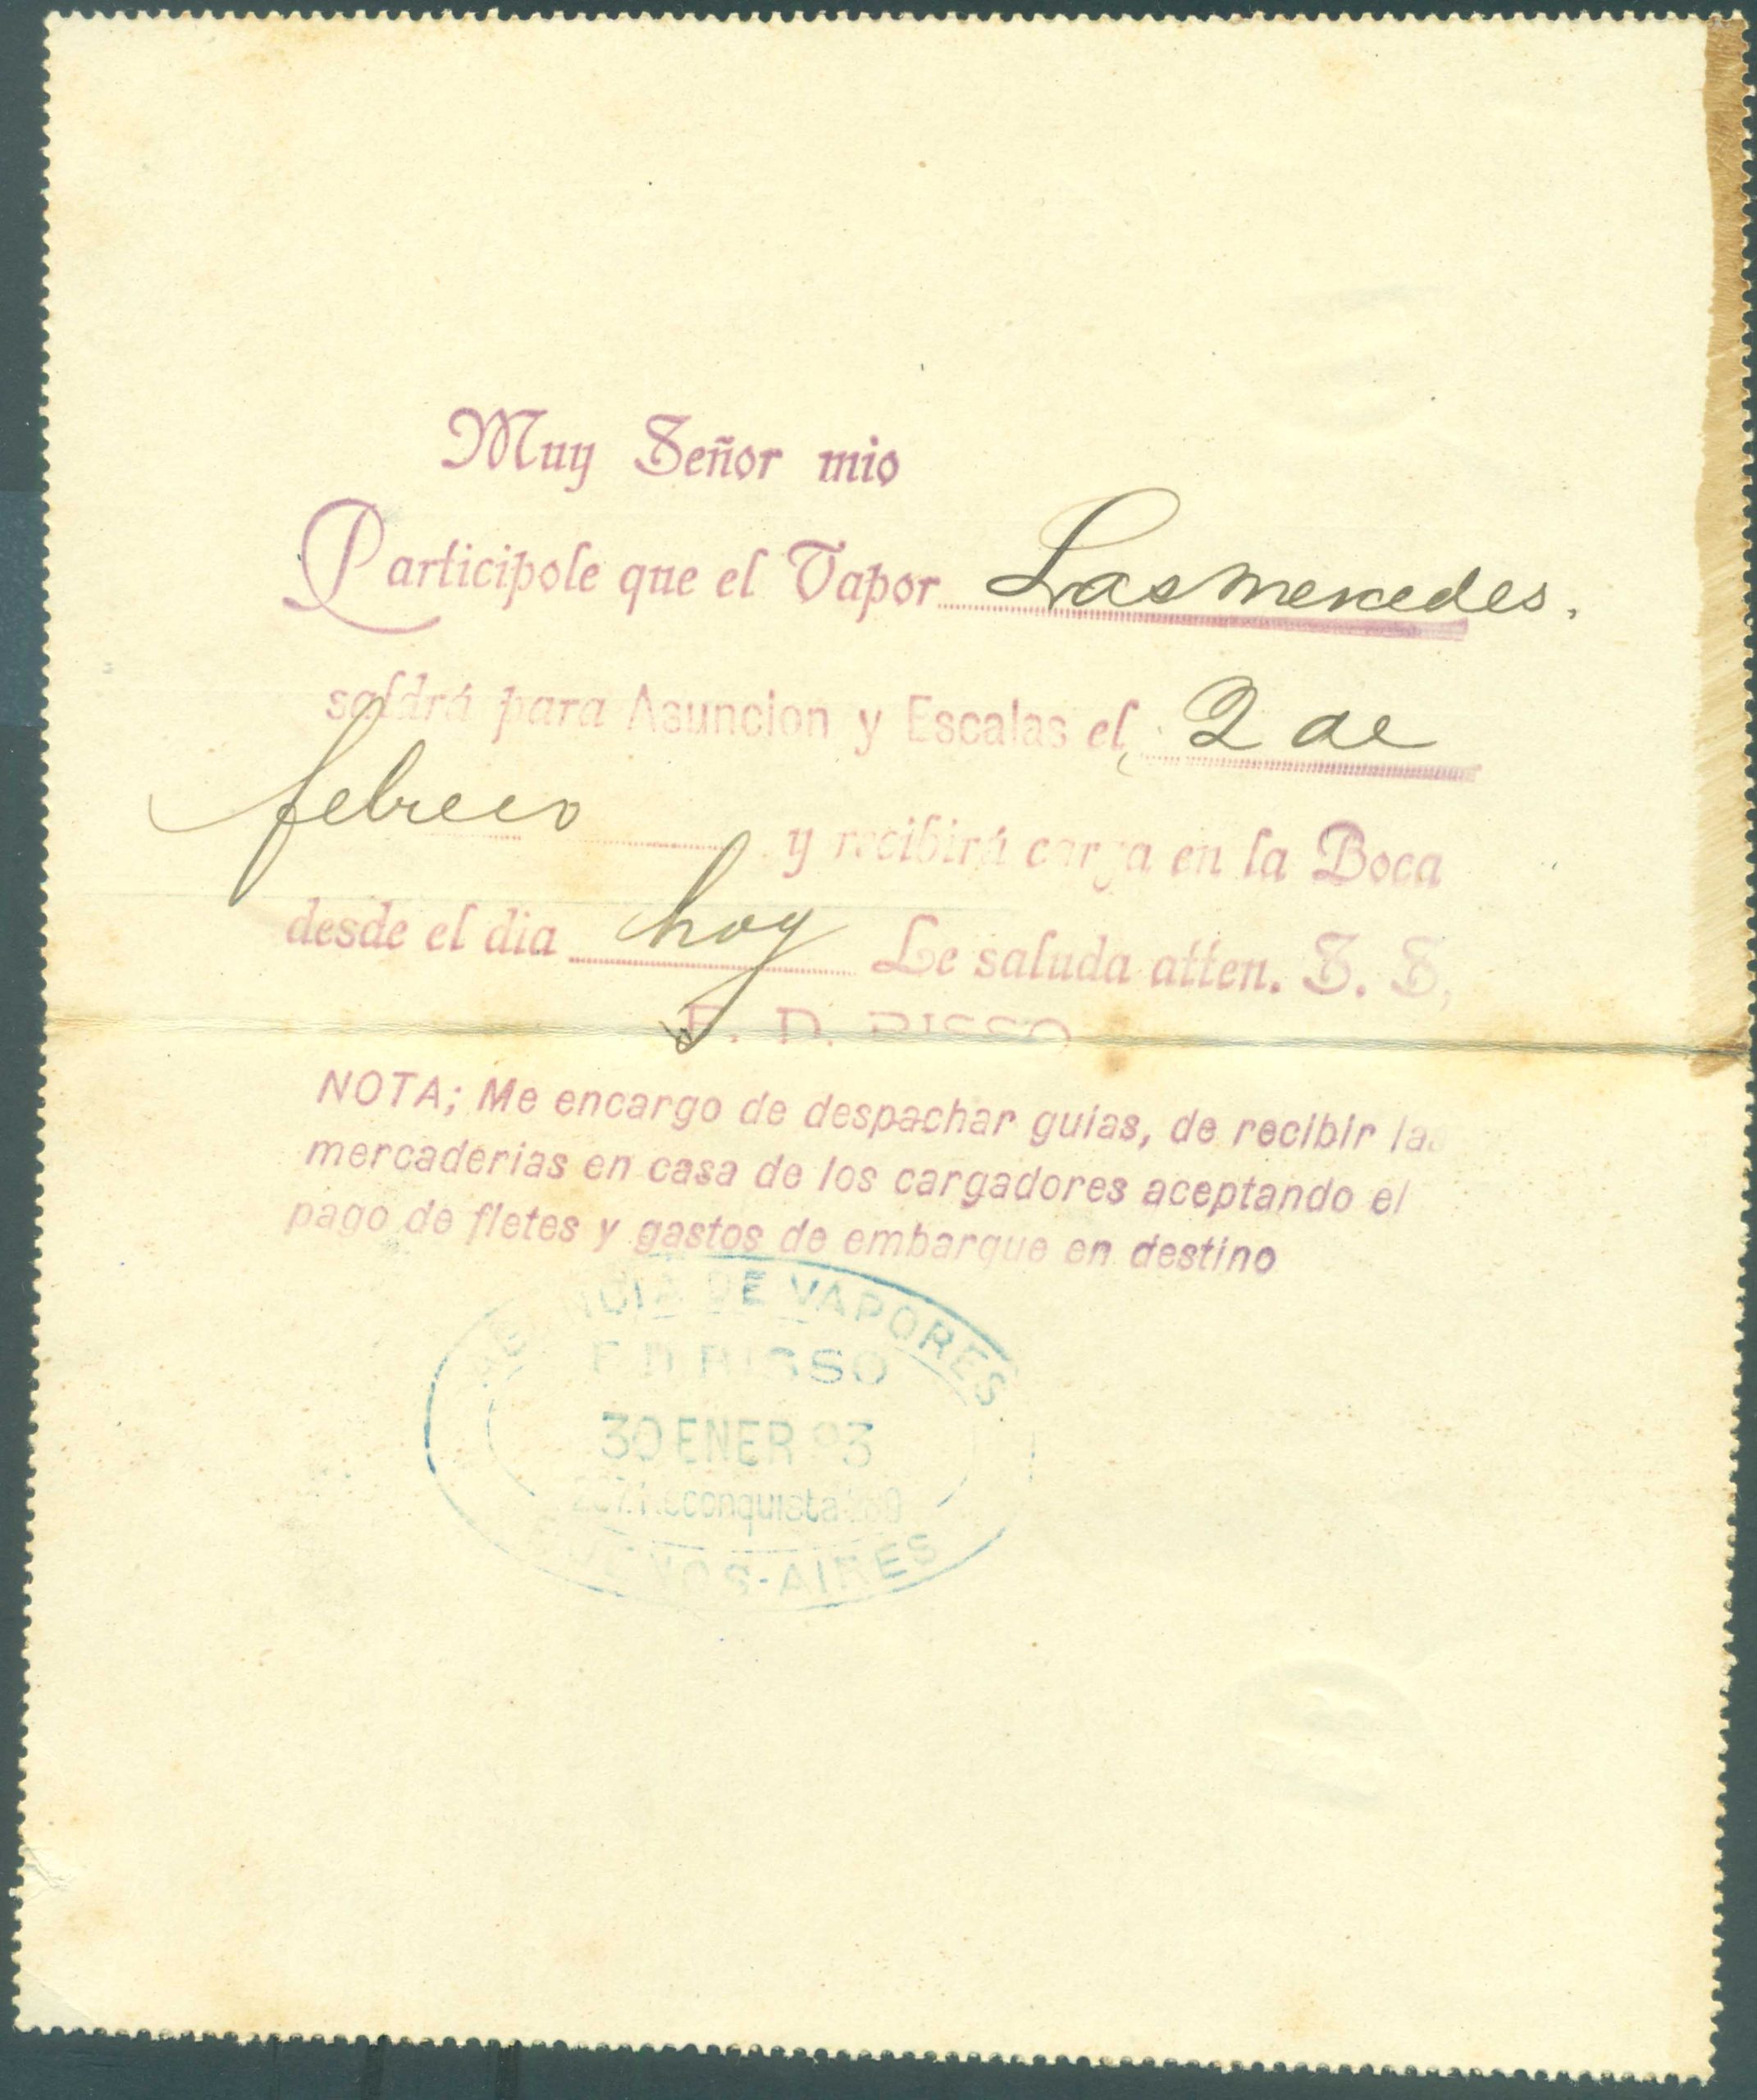 Muy Señor mio
Participole que el Vapor Las mercedes.
saldrá para Asuncion y Escalas el 2 de
febrero y recibirá carga en la Boca
desde el dia hoy Le saluda atten. S. S,
F. D. RISSO
NOTA; Me encargo de despachar guias, de recibir las
mercaderias en casa de los cargadores aceptando el
pago de fletes y gastos de embarque en destino
AGENCIA DE VAPORES
F. D. RISSO
30 ENER 93
Reconquista
BUENOS-AIRES